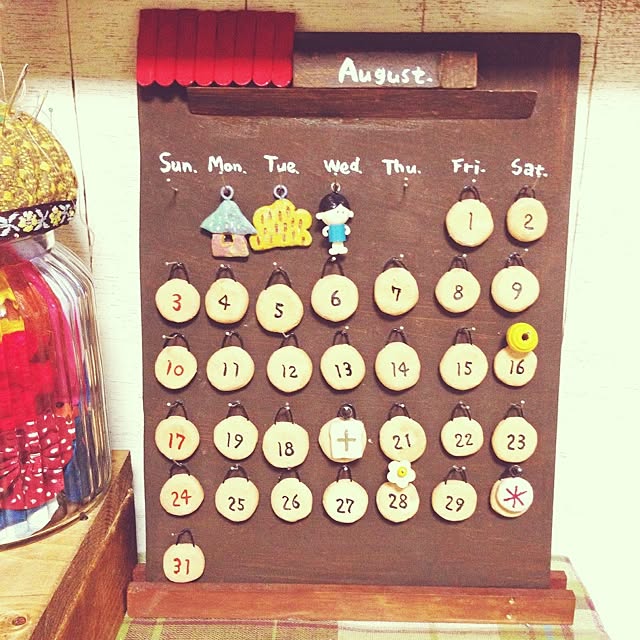 August.
Sun. Mon. Tue. Wed. Thu. Fri. Sat.
1 2
3 4 5 6 7 8 9
10 11 12 13 14 15 16
17 19 18 21 22 23
24 25 26 27 28 29
31